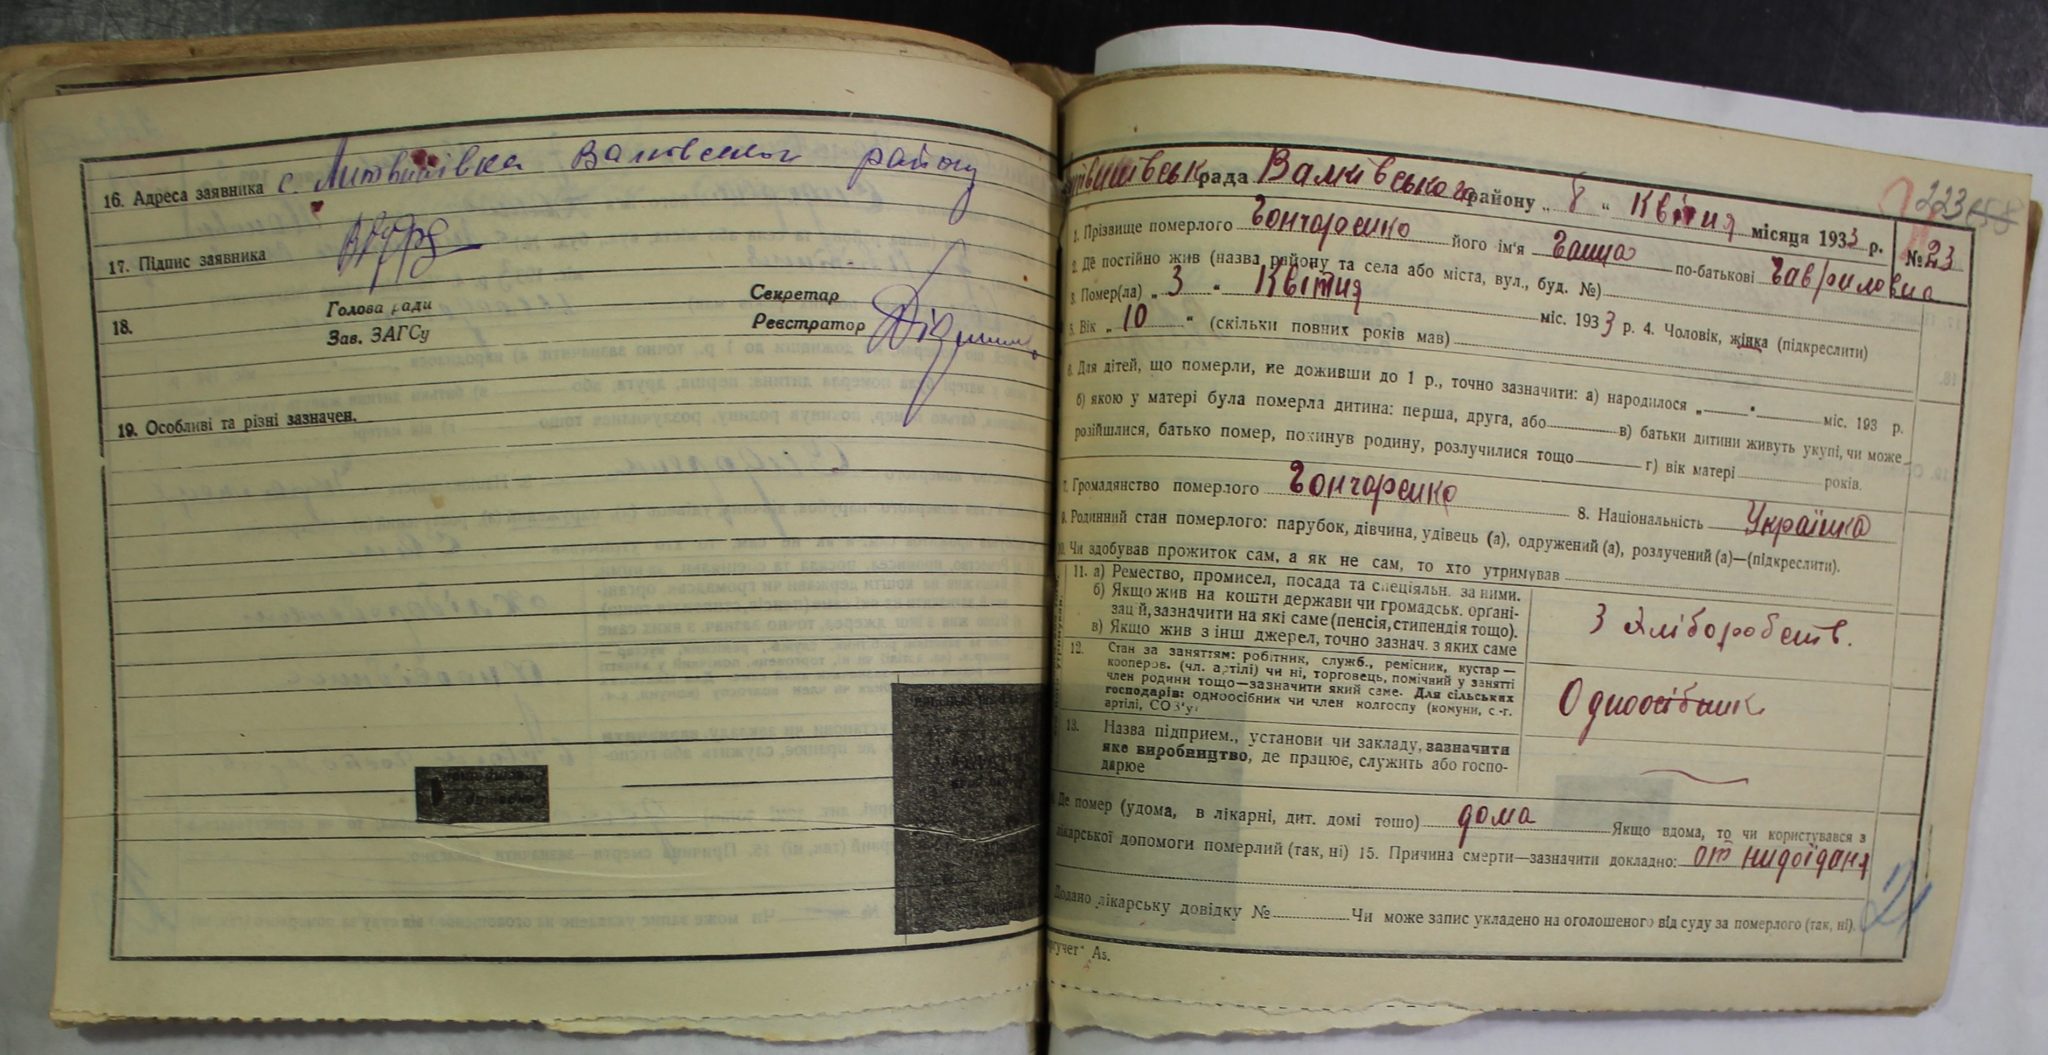 16. Адреса заявника с. Литвинівка Валківського району
17. Підпис заявника
18. Голова ради
Зав. ЗАГСу
Секретар
Реєстратор
19. Особливі та різні зазначен.
рада Валківського району „ 8 “ Квітня місяця 1933 р.
№ 23
223
1. Прізвище померлого Гончаренко його ім'я Ганна по-батькові Гавриловна
2. Де постійно жив (назва району та села або міста, вул., буд. №)
3. Помер(ла) „ 3 “ Квітня міс. 1933 р. 4. Чоловік, жінка (підкреслити)
5. Вік „ 10 “ (скільки повних років мав)
6. Для дітей, що померли, не доживши до 1 р., точно зазначити: а) народилося „ “ міс. 193 р.
б) якою у матері була померла дитина: перша, друга, або в) батьки дитини живуть укупі, чи може
розійшлися, батько помер, покинув родину, розлучилися тощо г) вік матері років.
7. Громадянство померлого Гончаренко 8. Національність Українка
9. Родинний стан померлого: парубок, дівчина, удівець (а), одружений (а), розлучений (а)—(підкреслити).
10. Чи здобував прожиток сам, а як не сам, то хто утримував
11. а) Ремество, промисел, посада та спеціяльн. за ними.
б) Якщо жив на кошти держави чи громадськ. органі-
зацій, зазначити на які саме (пенсія, стипендія тощо).
в) Якщо жив з інш джерел, точно зазнач. з яких саме
З Хліборобств.
12. Стан за заняттям: робітник, служб., ремісник, кустар—
кооперов. (чл. артілі) чи ні, торговець, помічний у занятті
член родини тощо—зазначити який саме. Для сільських
господарів: одноосібник чи член колгоспу (комуни, с.-г.
артілі, СОЗ'у
Одноосібник
13. Назва підприєм., установи чи закладу, зазначити
яке виробництво, де працює, служить або госпо-
дарює
Де помер (удома, в лікарні, дит. домі тощо) дома Якщо вдома, то чи користувався з
лікарської допомоги померлий (так, ні) 15. Причина смерти—зазначити докладно: от нидоїданя
Додано лікарську довідку № Чи може запис укладено на оголошеного від суду за померлого (так, ні).
21
А5.